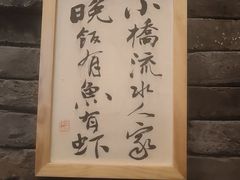 小橋流水人家
晚飯有魚有虾